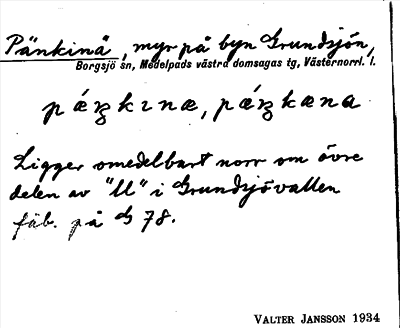 Pänkinå, myr på byn Grundsjön,
Borgsjö sn, Medelpads västra domsagas tg, Västernorrl. l.
Ligger omedelbart norr om övre
delen av "ll" i Grundsjövallen
fäb. på G 78.
VALTER JANSSON 1934